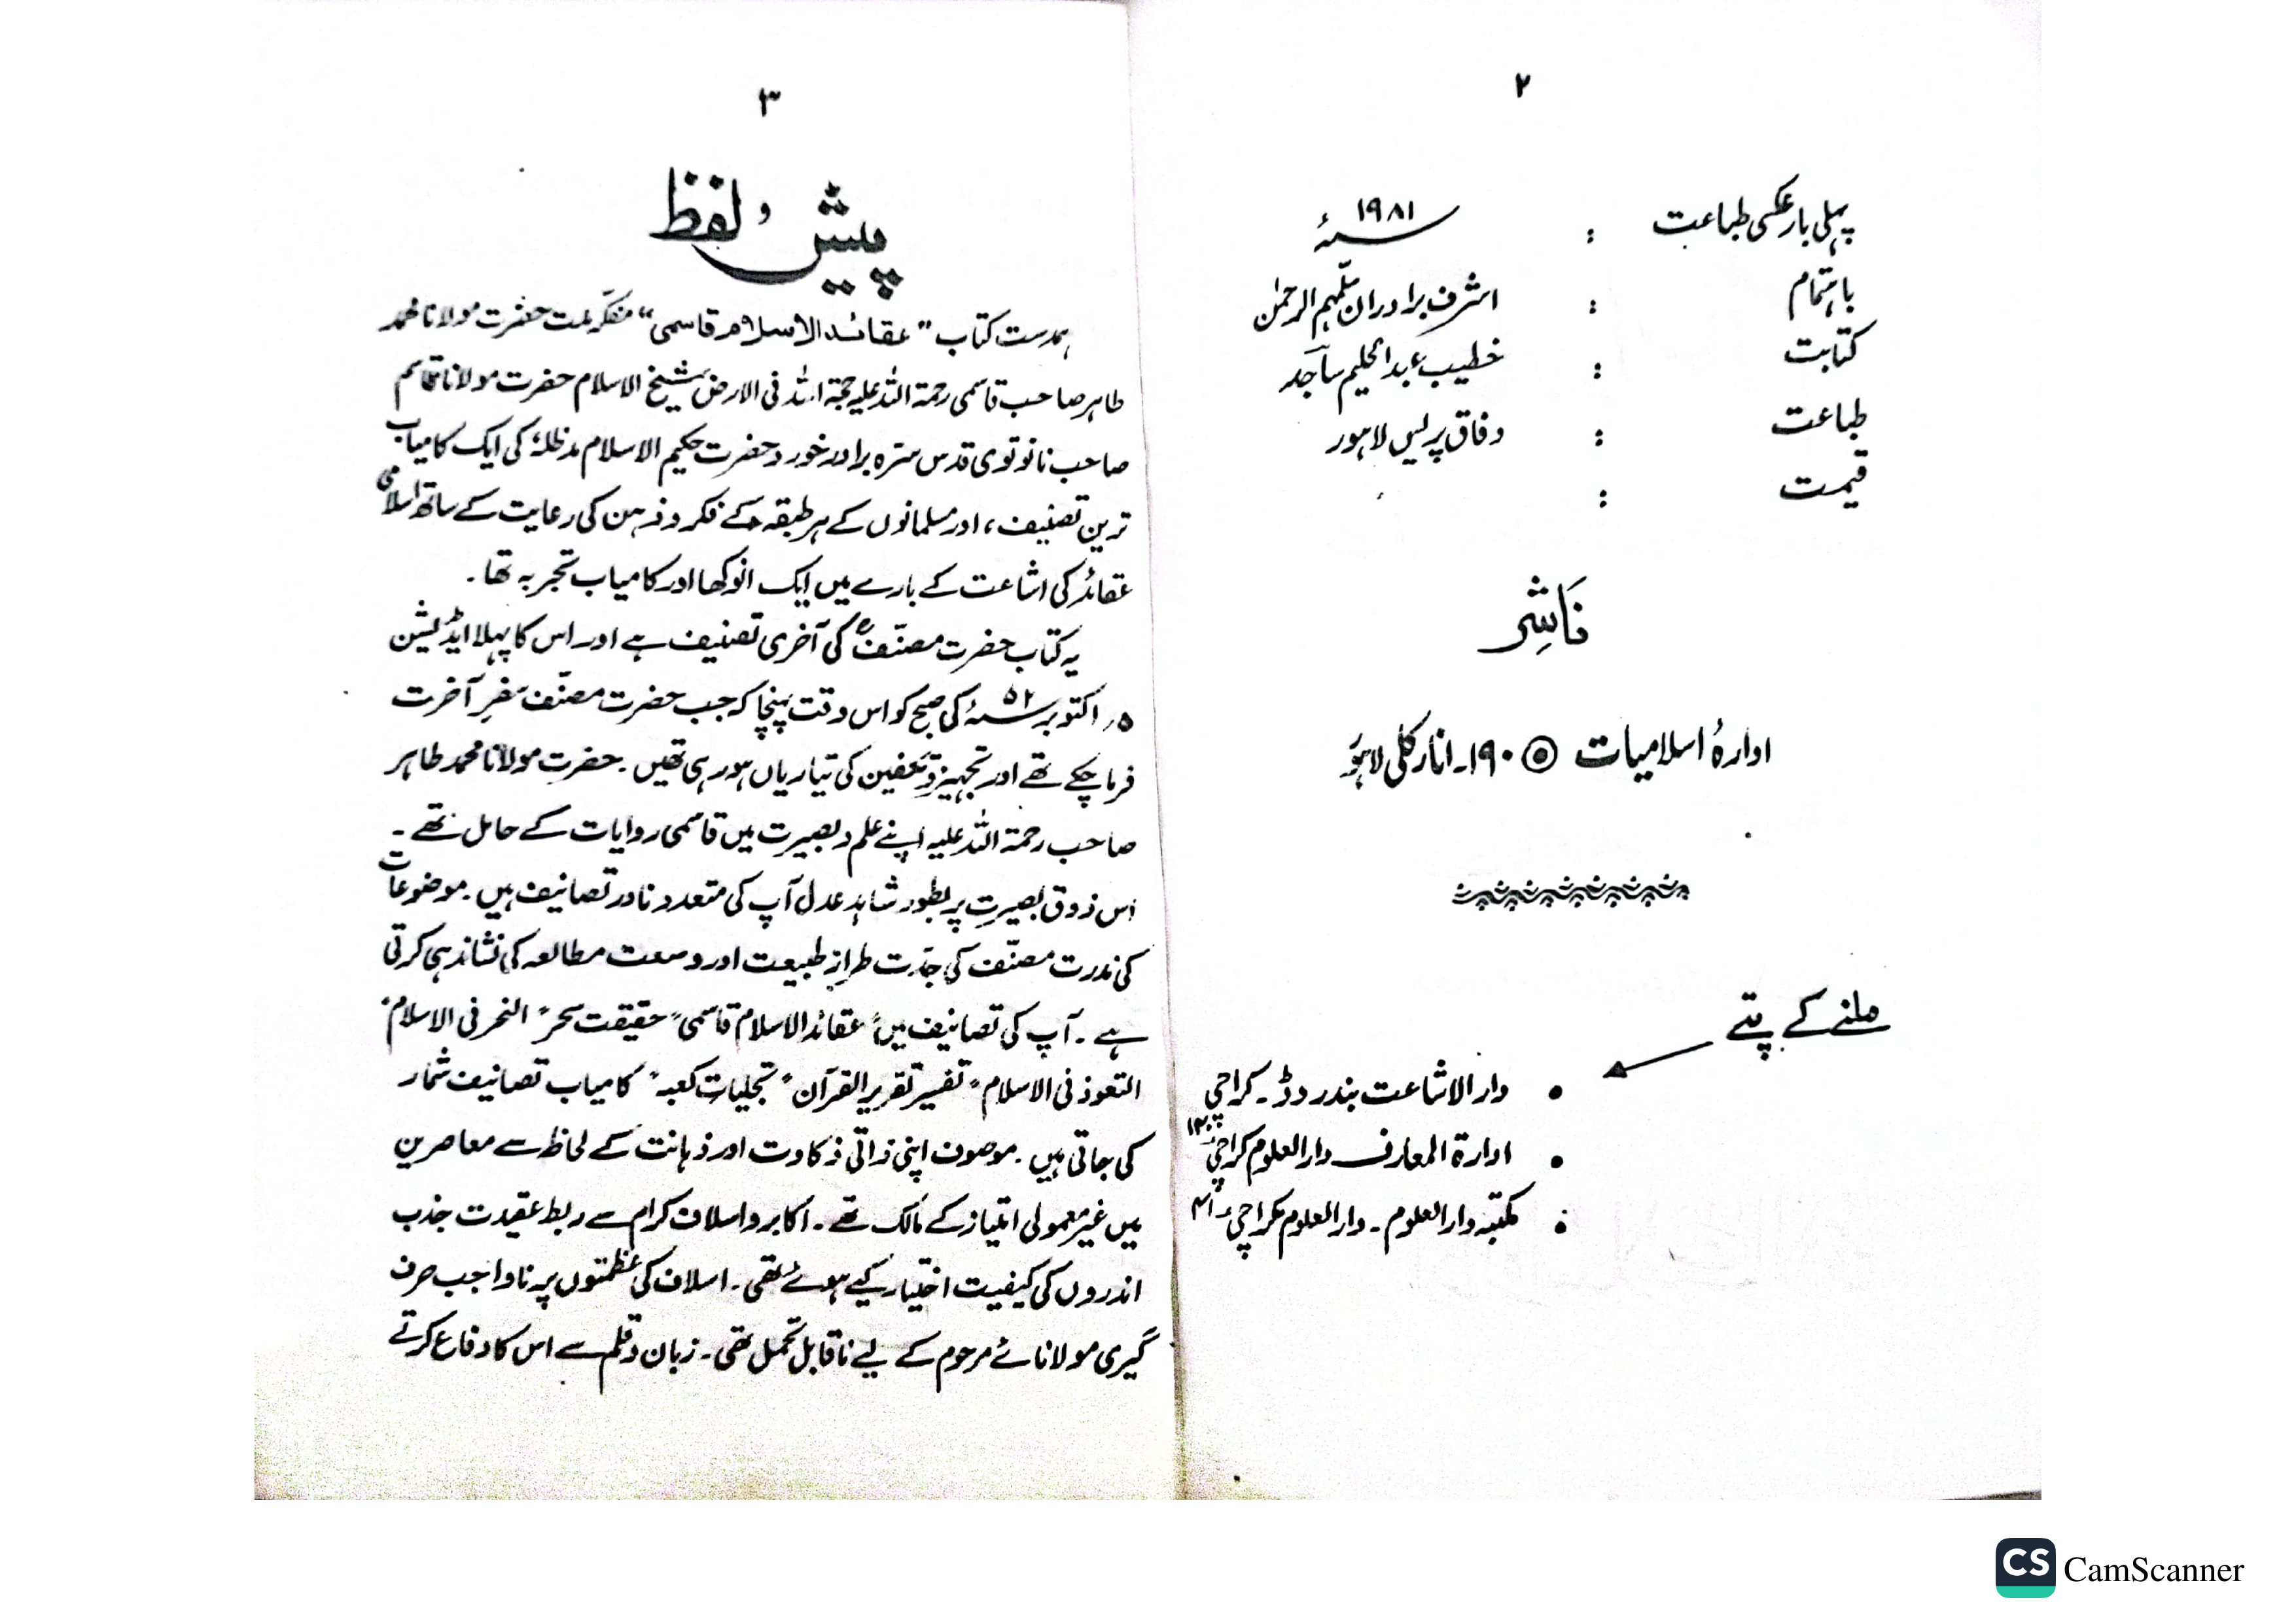 ۲
پہلی بار عکسی طباعت : ۱۹۸۱ ؁ء
باہتمام : اشرف برادران سلمہم الرحمٰن
کتابت : خطیب عبدالحلیم ساجد
طباعت : وفاق پریس لاہور
قیمت :
ناشر
ادارۂ اسلامیات ۱۹۰۔انارکلی لاہور
ملنے کے پتے
• دارالاشاعت بندر روڈ۔ کراچی
• ادارۃ المعارف دارالعلوم کراچی
• مکتبہ دارالعلوم۔ دارالعلوم کراچی
۳
پیش لفظ
ہمدست کتاب "عقائد الاسلام قاسمی" مفکر ملت حضرت مولانا محمد
طاہر صاحب قاسمی رحمۃ اللہ علیہ حجۃ اللہ فی الارض شیخ الاسلام حضرت مولانا قاسم
صاحب نانوتوی قدس سترہ برادر خورد حضرت حکیم الاسلام مدظلہٗ کی ایک کامیاب
ترین تصنیف، اور مسلمانوں کے ہر طبقہ کے فکر و ذہن کی رعایت کے ساتھ اسلامی
عقائد کی اشاعت کے بارے میں ایک انوکھا اور کامیاب تجربہ تھا۔
یہ کتاب حضرت مصنّفؒ کی آخری تصنیف ہے اور اس کا پہلا ایڈیشن
۵؍ اکتوبر ۵۲ ؁ء کی صبح کو اس وقت پہنچا کہ جب حضرت مصنّف سفرِ آخرت
فرما چکے تھے اور تجہیز و تکفین کی تیاریاں ہو رہی تھیں۔ حضرت مولانا محمد طاہر
صاحب رحمۃ اللہ علیہ اپنے علم و بصیرت میں قاسمی روایات کے حامل تھے۔
اس ذوق بصیرت پر بطور شاہد عدل آپ کی متعدد نادر تصانیف ہیں۔ موضوعات
کی ندرت مصنّف کی جدّت طراز طبیعت اور وسعت مطالعہ کی نشاندہی کرتی
ہے۔ آپ کی تصانیف میں "عقائد الاسلام قاسمی" "حقیقت سحر" النحر فی الاسلام"
التعوذ فی الاسلام" تفسیر تقریر القرآن" "تجلیات کعبہ" کامیاب تصانیف شمار
کی جاتی ہیں۔ موصوف اپنی ذاتی ذکاوت اور ذہانت کے لحاظ سے معاصرین
میں غیر معمولی امتیاز کے مالک تھے۔ اکابر و اسلاف کرام سے ربط عقیدت جذب
اندروں کی کیفیت اختیار کیے ہوئے تھی۔ اسلاف کی عظمتوں پر ناواجب حرف
گیری مولانائے مرحوم کے لیے ناقابل تحمل تھی۔ زبان و قلم سے اس کا دفاع کرتے
CS CamScanner